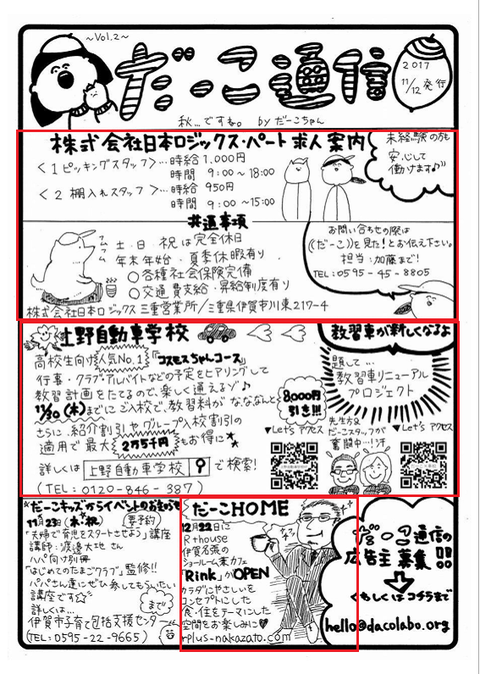 〜Vol.2〜
だーこ通信
2017
11/12 発行
秋...ですね。 by だーこちゃん
株式会社日本ロジックス・パート求人案内
<1 ピッキングスタッフ>…時給 1,000円
時間 9:00〜18:00
<2 棚入れスタッフ>…時給 950円
時間 9:00〜15:00
未経験の方も
安心して
働けます♪
共通事項
土・日・祝は完全休日
年末年始・夏季休暇有り
○各種社会保険完備
○交通費支給・昇給制度有り
お問い合わせの際は
『だーこ』を見た!とお伝え下さい。
担当:加藤まで!
TEL:0595-45-8805
株式会社日本ロジックス 三重営業所/三重県伊賀市川東2179-4
上野自動車学校
高校生向け人気No.1『コスモスちゃんコース』
行事・クラブ・アルバイトなどの予定をヒアリングして
教習計画をたてるので、楽しく通えるゾ♪
11/30(木)までにご入校で、教習料がなななんと
8000円
引き!!!
さらに、紹介割引やグループ入校割引の
適用で最大 2万5千円もお得に
詳しくは 上野自動車学校 で検索!
(TEL:0120-846-387)
教習車が新しくなるよ
題して...
教習車リニューアル
プロジェクト
▼Let's アクセス
先生方と
だーこスタッフが
奮闘中…!汗
▼Let's アクセス
だーこキッズからイベントのお知らせ
11月23日(木・祝)
要予約
「夫婦で育児をスタートさせよう」講座
講師:渡邉大地さん
パパ向け別冊
「はじめてのたまごクラブ」監修!!
パパさん達にぜひ参加してもらいたい
講座です☆
詳しくは…
まで
伊賀市子育て包括支援センター
(TEL:0595-22-9665)
だーこHOME
12月22日に
R+house
伊賀名張の
ショールーム兼カフェ
"Rink"がOPEN
カラダにやさしいを
コンセプトにした
食・住をテーマにした
空間をお楽しみに♥
rplus-nakazato.com
だーこ通信の
広告主募集!!
くわしくはコチラまで
hello@dacolabo.org